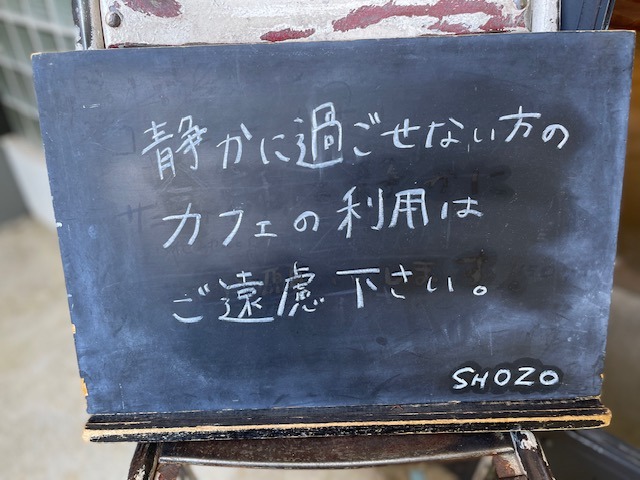 静かに過ごせない方の
カフェの利用は
ご遠慮下さい。
SHOZO